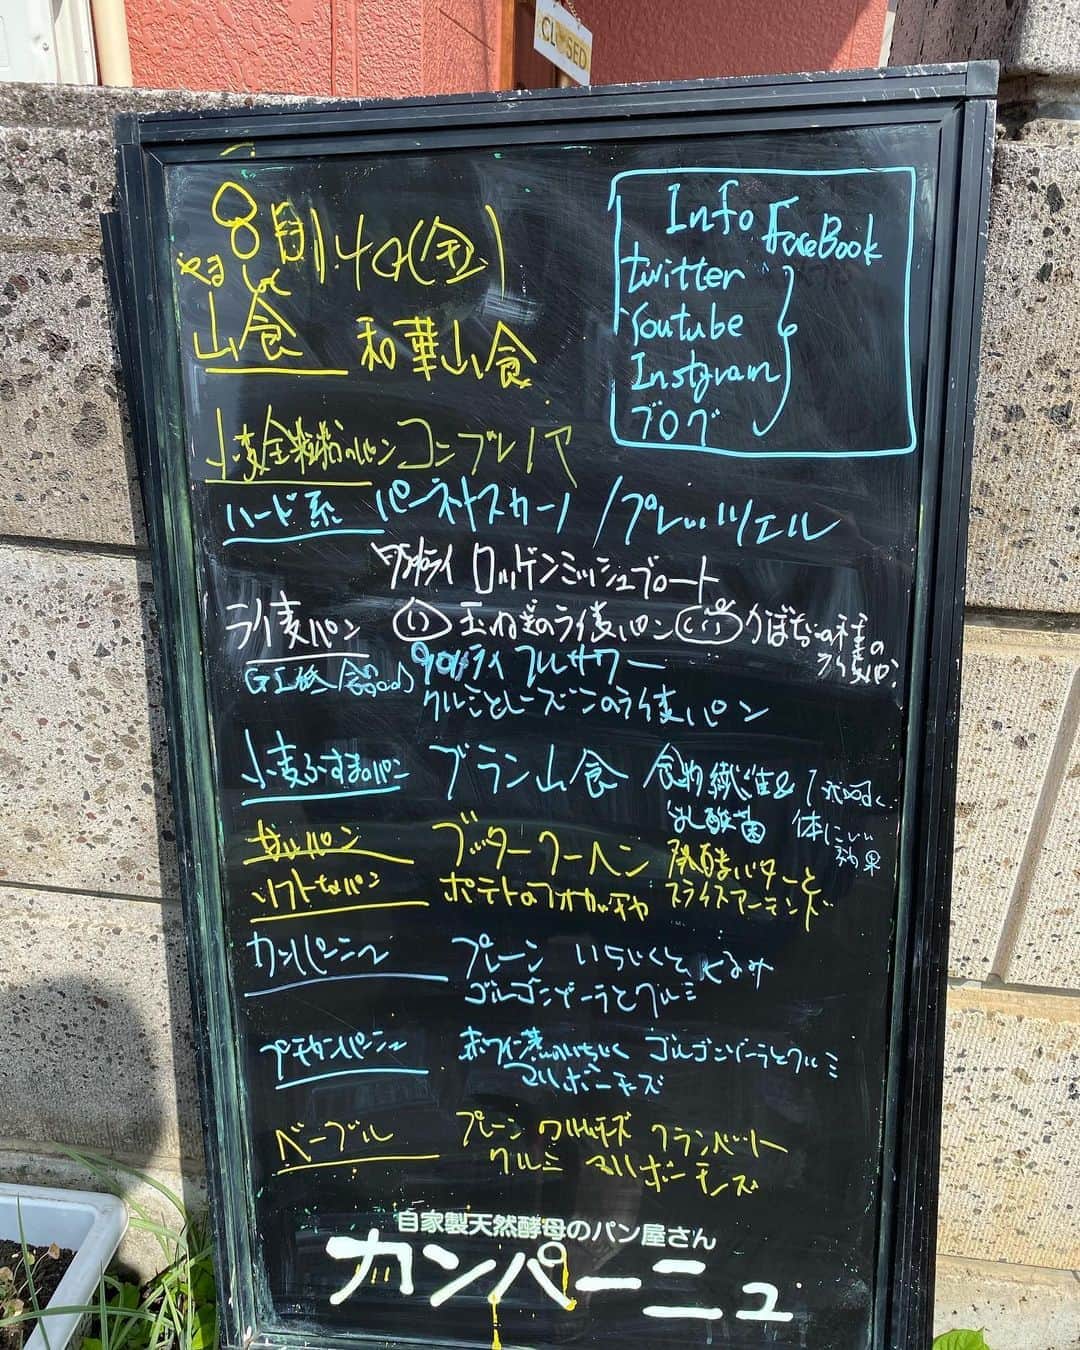 CLOSED
8月14日(金)
Info FaceBook
twitter
Youtube
Instagram
ブログ
やましょく
山食 和華山食
小麦全粒粉のパン コンプレノア
ハード系 パーネトスカーノ/プレッツェル
ロッゲンミッシュブロート
ライ麦パン 玉ねぎのライ麦パン かぼちゃの種のライ麦パン
GI低 フルサワー
クルミとレーズンのライ麦パン
小麦ふすまのパン ブラン山食 食物繊維&乳酸菌 体にいい効果
甘いパン ブッタークーヘン 発酵バターとスライスアーモンド
ソフトなパン ポテトのフォカッチャ
カンパーニュ プレーン いちじくとくるみ
ゴルゴンゾーラとクルミ
プチカンパーニュ 赤ワイン煮のいちじく ゴルゴンゾーラとクルミ
マルボーチーズ
ベーグル プレーン クランベリー
クルミ マルボーチーズ
自家製天然酵母のパン屋さん
カンパーニュ